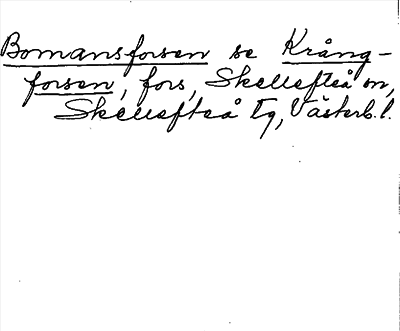 Bomansforsen se Krång-
forsen, fors, Skellefteå sn,
Skellefteå tg, Västerb. l.